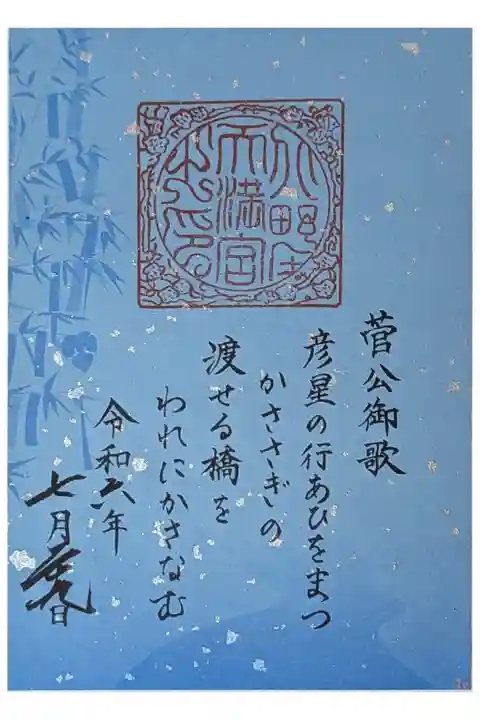 天満宮
菅公御歌
彦星の行あひをまつ
かささぎの
渡せる橋を
われにかさなむ
令和六年
七月日